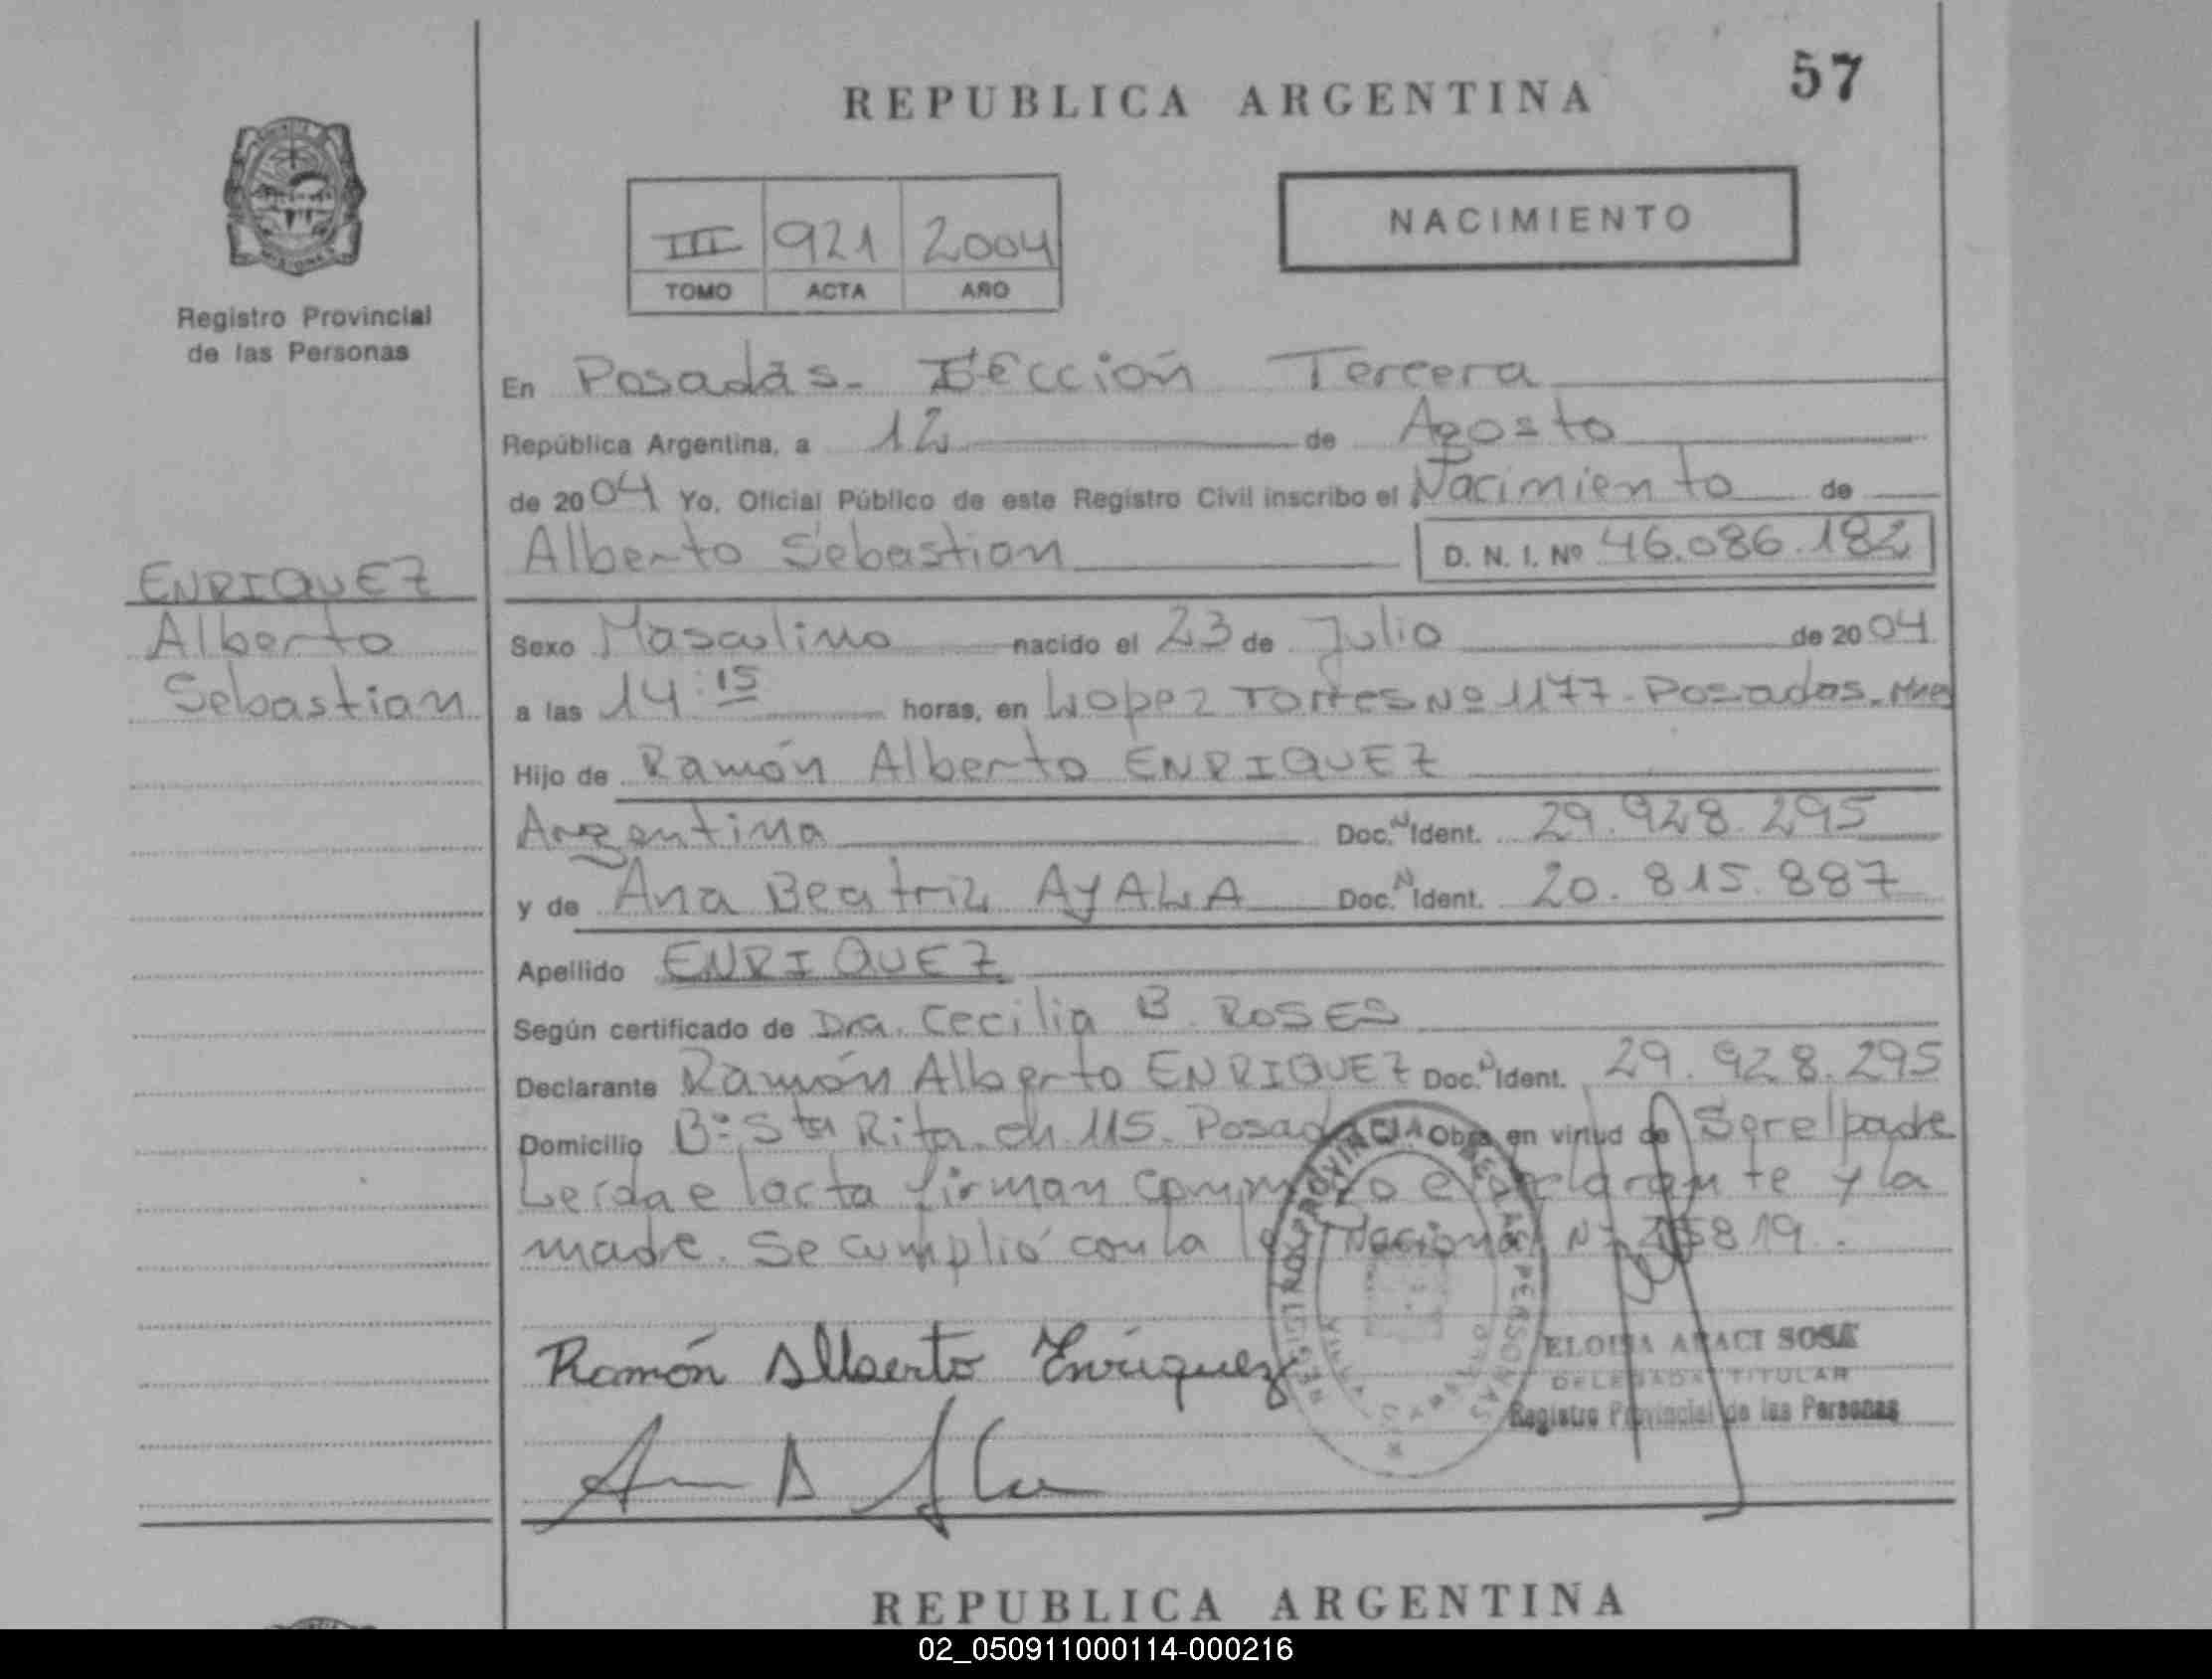 57
REPUBLICA ARGENTINA
NACIMIENTO
III 921 2004
TOMO ACTA AÑO
Registro Provincial
de las Personas
En Posadas - Sección Tercera
República Argentina, a 12 de Agosto
de 2004 Yo, Oficial Público de este Registro Civil inscribo el Nacimiento de
Alberto Sebastian D. N. I. Nº 46.086.182
ENRIQUEZ
Alberto
Sebastian
Sexo Masculino nacido el 23 de Julio de 2004
a las 14:15 horas, en Lopez Torres Nº 1177 - Posadas - Mnes
Hijo de Ramón Alberto ENRIQUEZ
Argentina Doc. N Ident. 29.928.295
y de Ana Beatriz AYALA Doc. N Ident. 20.815.887
Apellido ENRIQUEZ
Según certificado de Dra. Cecilia B. ROSES
Declarante Ramón Alberto ENRIQUEZ Doc. N Ident. 29.928.295
Domicilio Bº Sta Rita ch 115. Posadas Obra en virtud de Ser el padre
Leída el acta firman conmigo el declarante y la
madre. Se cumplió con la ley Nacional Nº 25819.
Ramón Alberto Enriquez
REGISTRO PROVINCIAL DE LAS PERSONAS
ELOISA ARACI SOSA
DELEGADA TITULAR
Registro Provincial de las Personas
REPUBLICA ARGENTINA
02_050911000114-000216